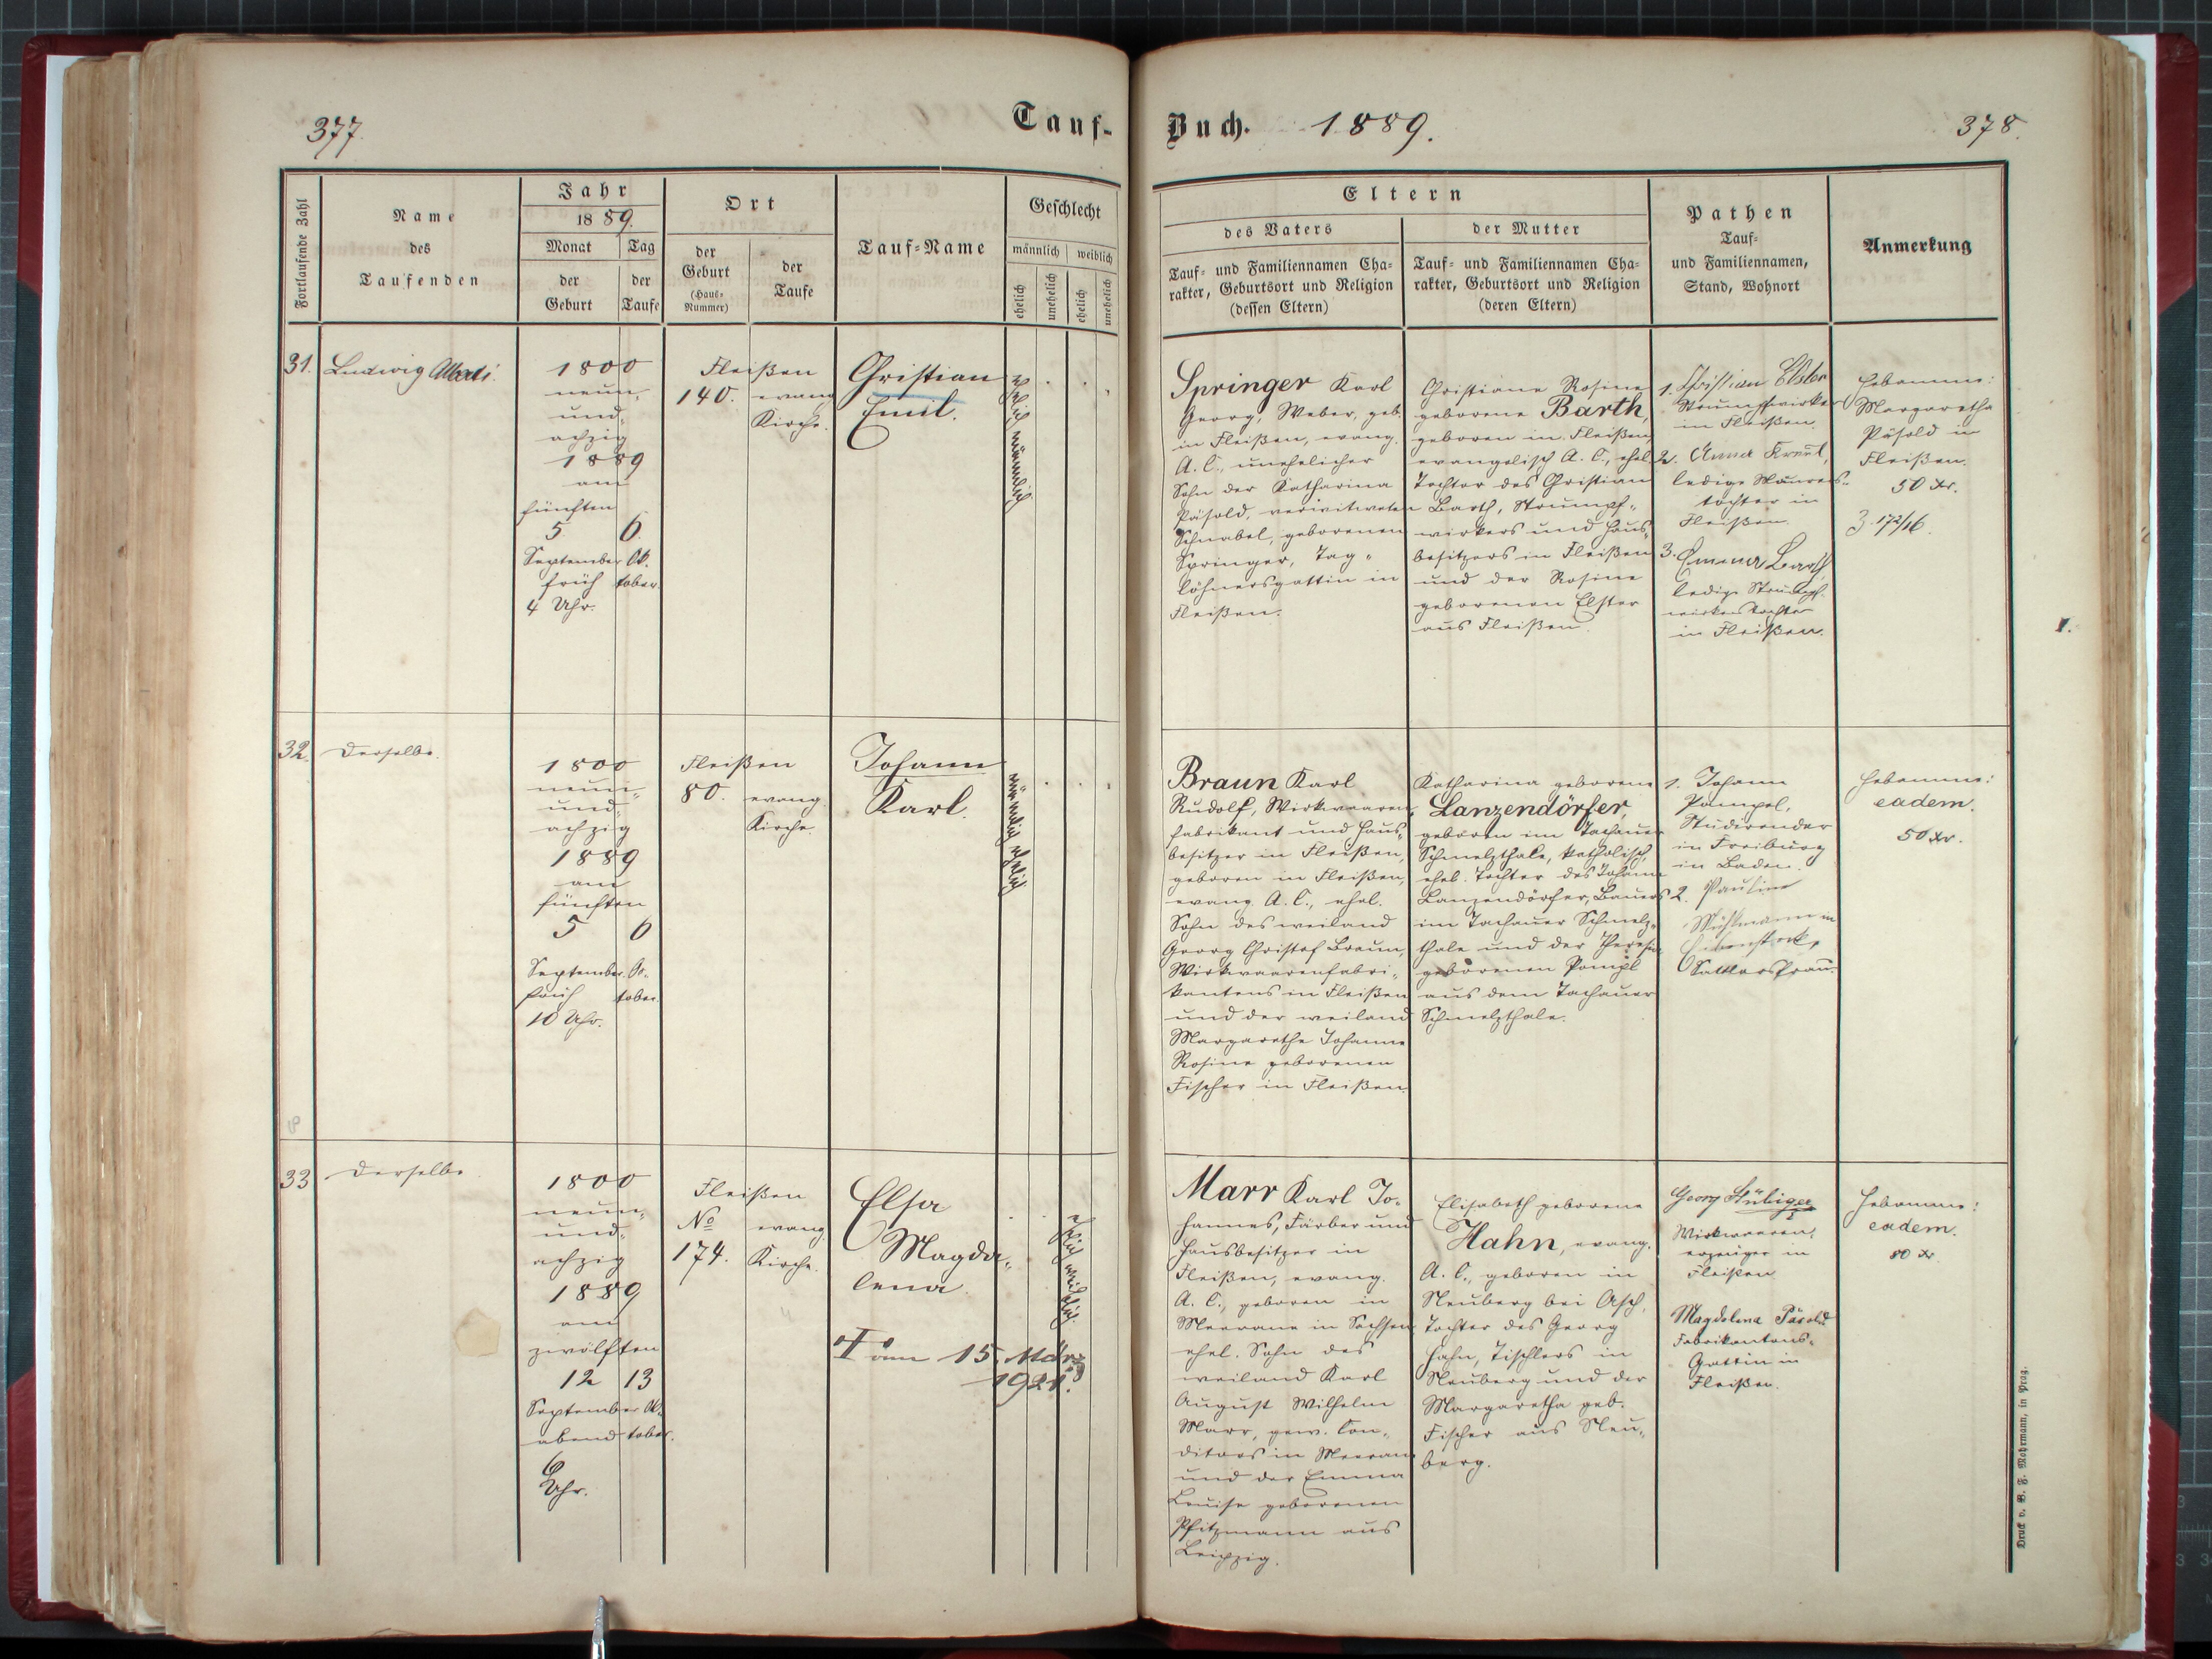 377.
Tauf-
Buch. 1889.
378.
Fortlaufende Zahl
Name
des
Taufenden
Jahr
1889.
Monat
Tag
der
Geburt
der
Taufe
Ort
der
Geburt
(Haus-
Nummer)
der
Taufe
Tauf-Name
Geschlecht
männlich
weiblich
ehelich
unehelich
ehelich
unehelich
Eltern
des Vaters
Tauf- und Familiennamen Cha-
rakter, Geburtsort und Religion
(dessen Eltern)
der Mutter
Tauf- und Familiennamen Cha-
rakter, Geburtsort und Religion
(deren Eltern)
Pathen
Tauf-
und Familiennamen,
Stand, Wohnort
Anmerkung
31.
Ludwig Alberti.
1800
neun-
und-
achzig
1889
am
fünften
5 6.
September Ok-
früh tober.
4 Uhr.
Fleißen
140. evang.
Kirche.
Christian
Emil.
ehelich männlich
Springer Karl
Georg, Weber, geb.
in Fleißen, evang.
A. C., unehelicher
Sohn der Katharina
Päsold, verwitweten
Schnabel, geborenen
Springer, Tag-
löhnersgattin in
Fleißen.
Christiane Rosine
geborene Barth,
geboren in Fleißen,
evangelisch A. C., ehel.
Tochter des Christian
Barth, Strumpf-
wirkers und Haus-
besitzers in Fleißen
und der Rosine
geborenen Elster
aus Fleißen.
1. Christian Elster
Strumpfwirker
in Fleißen.
2. Anna Kreul,
ledige Maurers-
tochter in
Fleißen.
3. Emma Barth
ledige Strumpf-
wirkerstochter
in Fleißen.
Hebamme:
Margaretha
Päsold in
Fleißen.
50 xr.
Z. 172/16.
1.
32.
Derselbe.
1800
neun-
und-
achzig
1889
am
fünften
5 6
September Ok-
früh tober.
10 Uhr.
Fleißen
80. evang.
Kirche.
Johann
Karl.
männlich ehelich
Braun Karl
Rudolf, Wirkwaaren-
fabrikant und Haus-
besitzer in Fleißen,
geboren in Fleißen,
evang. A. C., ehel.
Sohn des weiland
Georg Christof Braun,
Wirkwaarenfabri-
kantens in Fleißen
und der weiland
Margarethe Johanne
Rosine geborenen
Fischer in Fleißen.
Katharina geborene
Lanzendörfer,
geboren im Tachauer
Schmelzthale, katholisch,
ehel. Tochter des Johann
Lanzendörfer, Bauers
im Tachauer Schmelz-
thale und der Theresia
geborenen Pompl
aus dem Tachauer
Schmelzthale.
1. Johann
Pompel,
Studirender
in Freiburg
in Baden.
2. Pauline
Mühlmann in
Eibenstock,
Sattlersfrau.
Hebamme:
eadem.
50 xr.
33
Derselbe.
1800
neun-
und-
achzig
1889
am
zwölften
12 13
September Ok-
abend tober.
6
Uhr.
Fleißen
No evang.
174. Kirche.
Elsa
Magda-
lena.
† am 15. März
1921.
ehelich weiblich
Marr Karl Jo-
hannes, Färber und
Hausbesitzer in
Fleißen, evang.
A. C., geboren in
Meerane in Sachsen
ehel. Sohn des
weiland Karl
August Wilhelm
Marr, gew. Con-
ditors in Meerane
und der Emma
Louise geborenen
Pfitzmann aus
Leipzig.
Elisabeth geborene
Hahn, evang.
A. C., geboren in
Neuberg bei Asch,
Tochter des Georg
Hahn, Tischlers in
Neuberg und der
Margaretha geb.
Fischer aus Neu-
berg.
Georg Stübiger
Wirkwaaren-
erzeuger in
Fleißen
Magdalena Päsold
Fabrikantens-
Gattin in
Fleißen.
Hebamme:
eadem.
80 xr
Druck v. B. F. Mohrmann, in Prag.